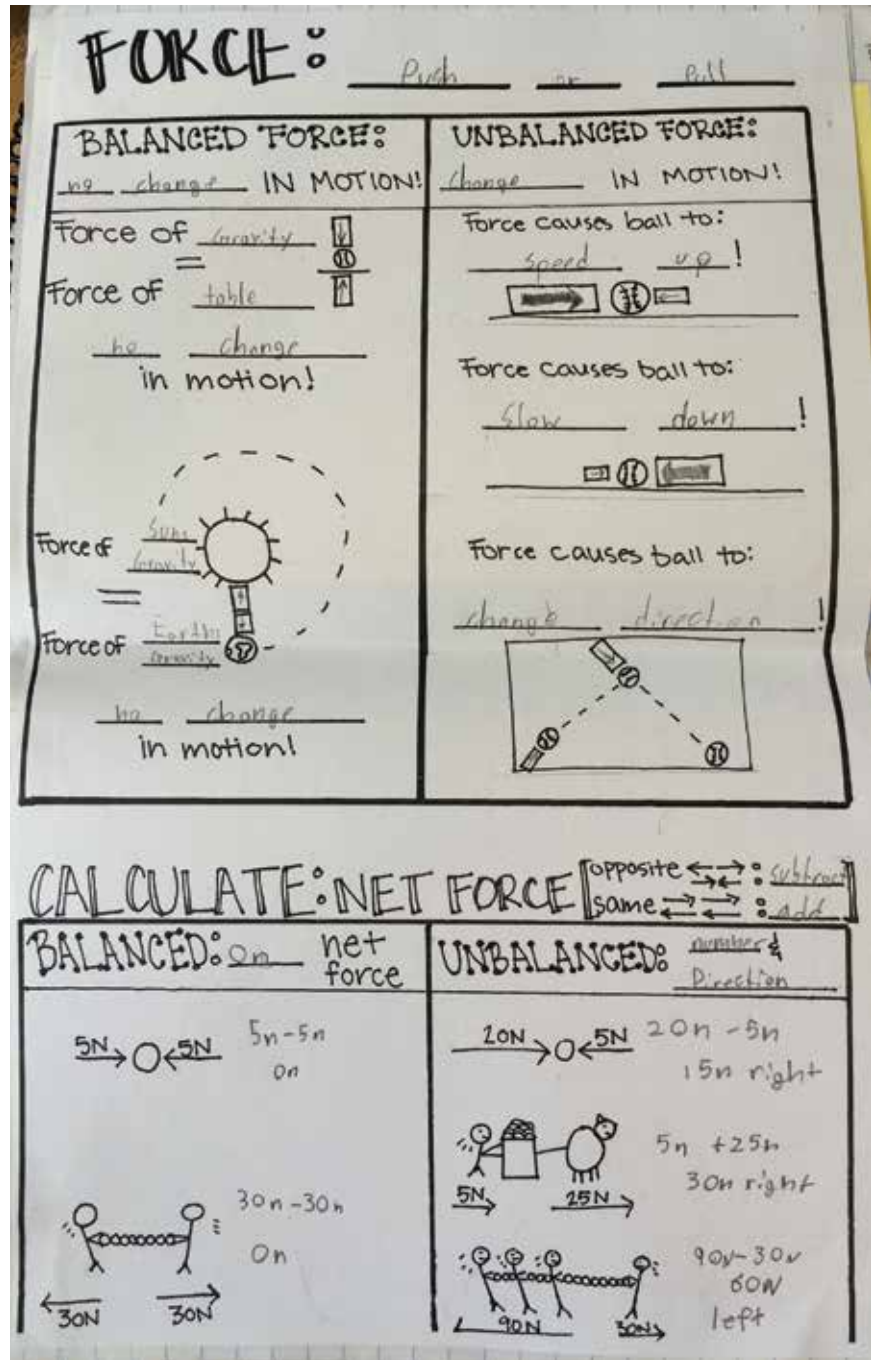 FORCE: Push or Pull
BALANCED FORCE:
no change IN MOTION!
Force of Gravity
=
Force of table
no change
in motion!
Force of Suns
Gravity
=
Force of Earths
Gravity
no change
in motion!
UNBALANCED FORCE:
change IN MOTION!
Force causes ball to:
speed up!
Force causes ball to:
Slow down!
Force causes ball to:
change direction!
CALCULATE: NET FORCE
opposite : subtract
same : add
BALANCED: 0n net
force
5N 5N 5n-5n
0n
30n-30n
0n
30N 30N
UNBALANCED: number &
Direction
20N 5N 20n-5n
15n right
5n +25n
30n right
5N 25N
90N-30N
60N
left
90N 30N